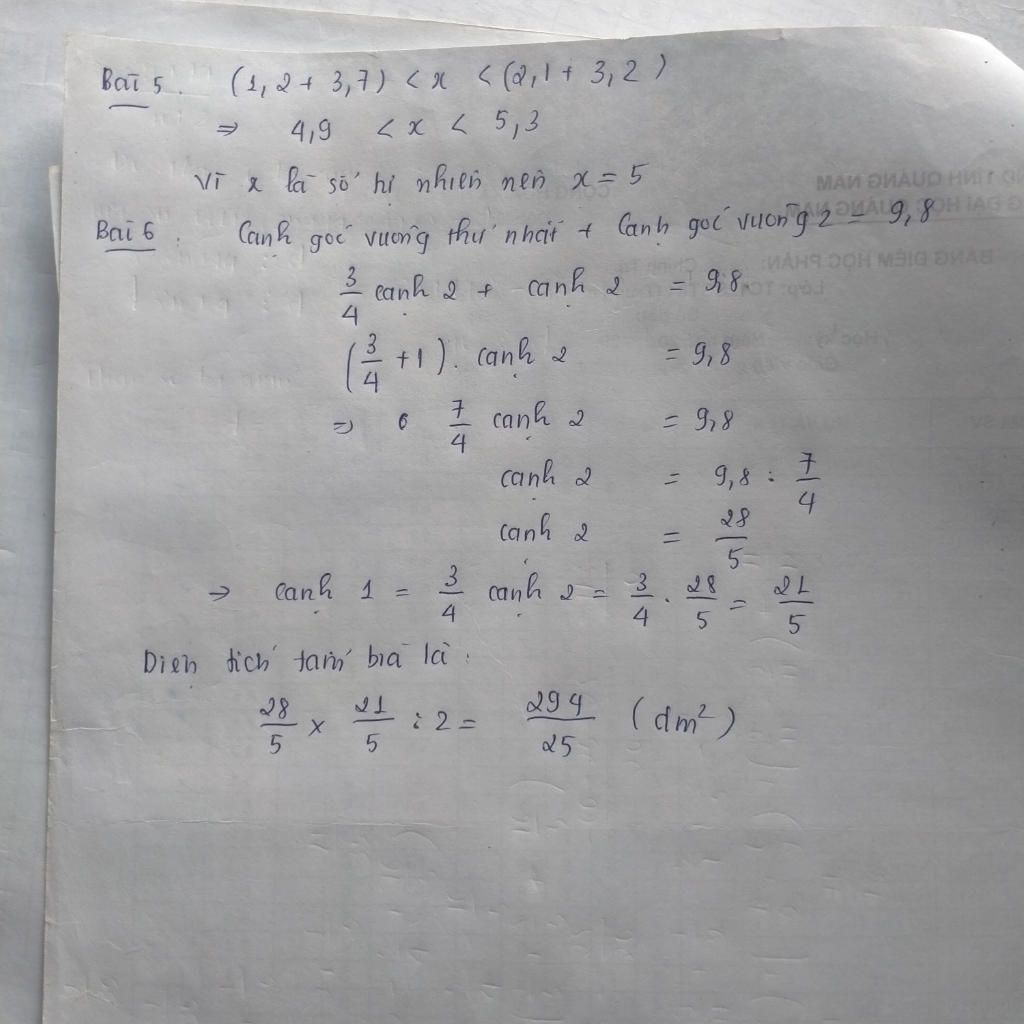 Bài 5. (1,2 + 3,7) < x < (2,1 + 3,2)
⇒ 4,9 < x < 5,3
Vì x là số tự nhiên nên x = 5
Bài 6. Cạnh góc vuông thứ nhất + Cạnh góc vuông 2 = 9,8
3/4 cạnh 2 + cạnh 2 = 9,8
(3/4 + 1). cạnh 2 = 9,8
⇒ 7/4 cạnh 2 = 9,8
cạnh 2 = 9,8 : 7/4
cạnh 2 = 28/5
→ cạnh 1 = 3/4 cạnh 2 = 3/4 . 28/5 = 21/5
Diện tích tấm bìa là :
28/5 x 21/5 : 2 = 294/25 (dm²)
BẢNG ĐIỂM HỌC PHẦN: